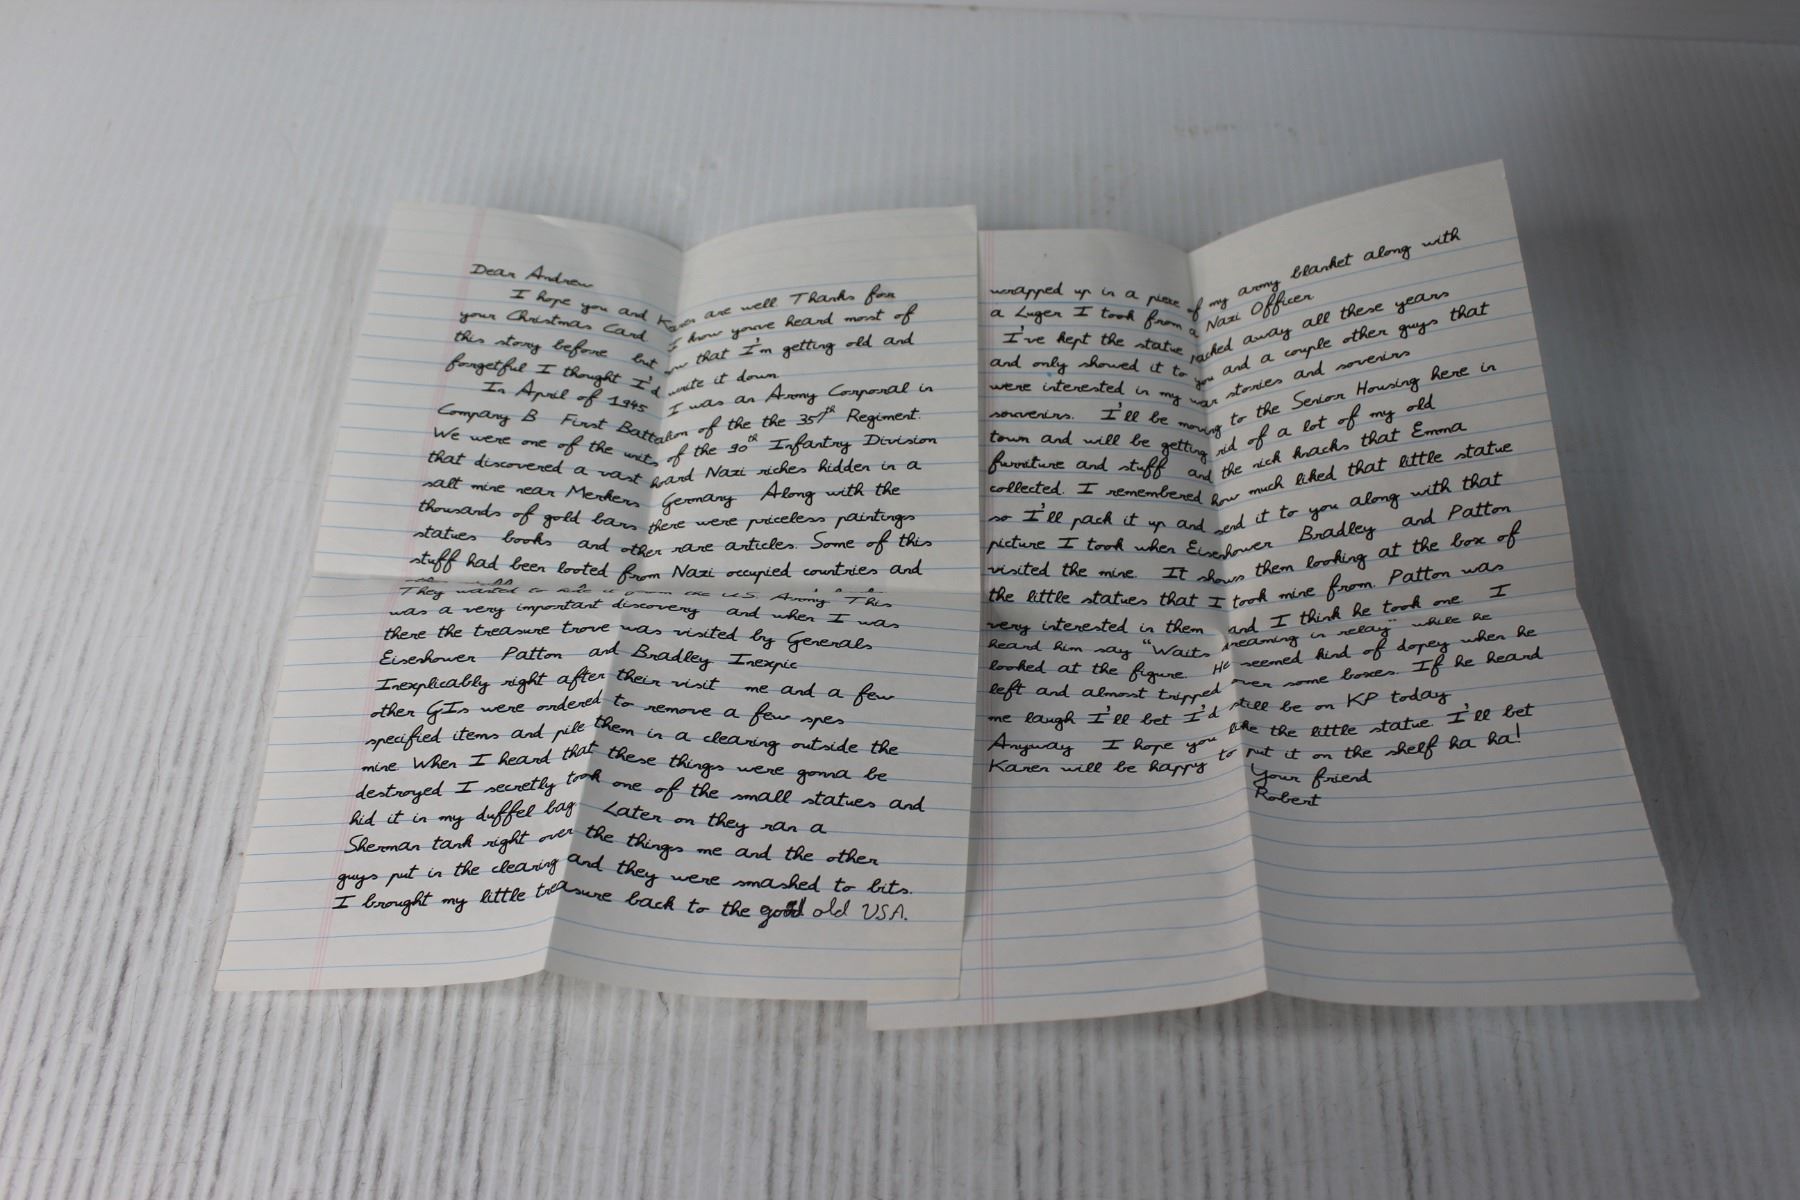 Dear Andrew
I hope you and Karen are well Thanks for
your Christmas Card I know youve heard most of
this story before but now that I'm getting old and
forgetful I thought I'd write it down
In April of 1945 I was an Army Corporal in
Company B First Battalion of the the 357th Regiment.
We were one of the units of the 90th Infantry Division
that discovered a vast hoard Nazi riches hidden in a
salt mine near Merkers Germany Along with the
thousands of gold bars there were priceless paintings
statues books and other rare articles. Some of this
stuff had been looted from Nazi occupied countries and
They wanted to hide it from the U.S. Army This
was a very important discovery and when I was
there the treasure trove was visited by Generals
Eisenhower Patton and Bradley Inexpic
Inexplicably right after their visit me and a few
other GIs were ordered to remove a few spes
specified items and pile them in a clearing outside the
mine When I heard that these things were gonna be
destroyed I secretly took one of the small statues and
hid it in my duffel bag Later on they ran a
Sherman tank right over the things me and the other
guys put in the clearing and they were smashed to bits.
I brought my little treasure back to the good old USA.
wrapped up in a piece of my army blanket along with
a Luger I took from a Nazi Officer
I've kept the statue packed away all these years
and only showed it to you and a couple other guys that
were interested in my war stories and sovenirs
souvenirs. I'll be moving to the Senior Housing here in
town and will be getting rid of a lot of my old
furniture and stuff and the nick knacks that Emma
collected. I remembered how much liked that little statue
so I'll pack it up and send it to you along with that
picture I took when Eisenhower Bradley and Patton
visited the mine. It shows them looking at the box of
the little statues that I took mine from. Patton was
very interested in them and I think he took one I
heard him say "Waits dreaming in relay" while he
looked at the figure. He seemed kind of dopey when he
left and almost tripped over some boxes. If he heard
me laugh I'll bet I'd still be on KP today
Anyway I hope you like the little statue. I'll bet
Karen will be happy to put it on the shelf ha ha!
Your friend
Robert